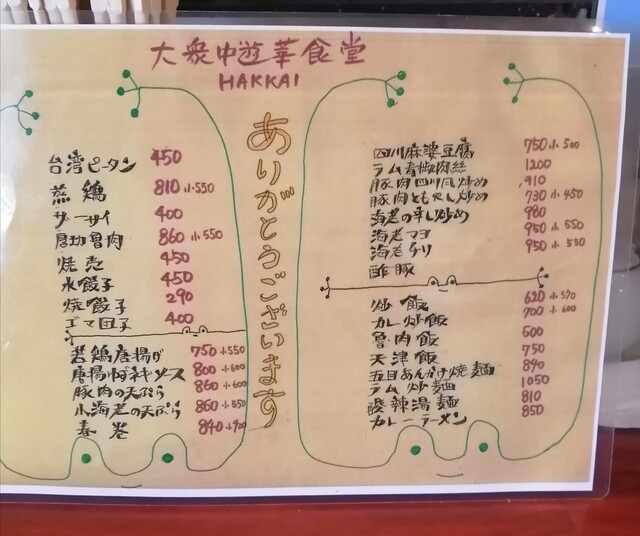 大衆中遊華食堂
HAKKAI
ありがとうございます
台湾ピータン 450
蒸鶏 810 小550
ザーサイ 400
魯肉 860 小550
焼売 450
水餃子 450
焼餃子 290
ゴマ団子 400
若鶏唐揚げ 750 小550
唐揚ネギソース 800 小600
豚肉の天ぷら 860 小600
小海老の天ぷら 860 小550
春巻 840
四川麻婆豆腐 750 小500
ラム青椒肉絲 1200
豚肉四川風炒め 910
豚肉ともやし炒め 730 小450
海老の辛し炒め 980
海老マヨ 950 小550
海老チリ 950 小550
酢豚
炒飯 620 小520
カレー炒飯 700 小600
魯肉飯 500
天津飯 750
五目あんかけ焼麺 840
ラム炒麺 1050
酸辣湯麺 810
カレーラーメン 850